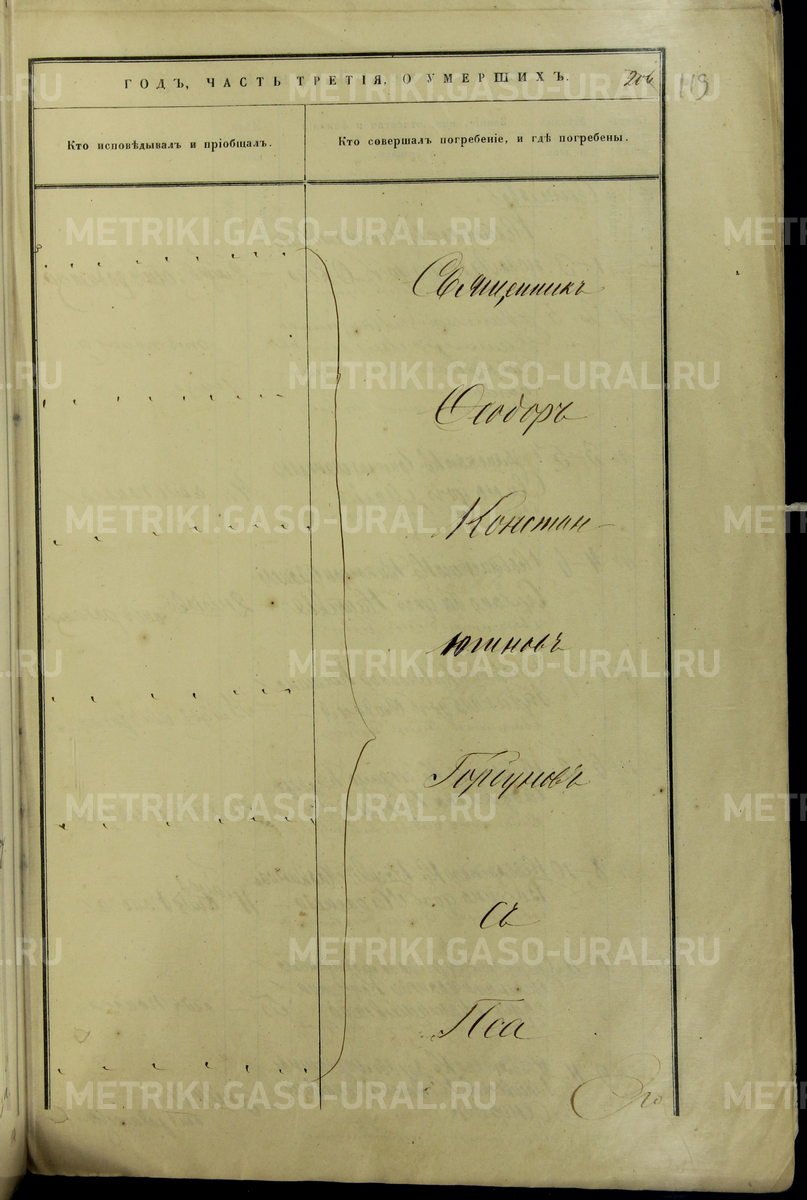 ГОДЪ, ЧАСТЬ ТРЕТІЯ, О УМЕРШИХЪ. 206 119
Кто исповѣдывалъ и пріобщалъ.
Кто совершалъ погребеніе, и гдѣ погребены.
Священникъ
Ѳеодоръ
Констан-
тиновъ
Горгуновъ
съ
Пса
METRIKI.GASO-URAL.RU